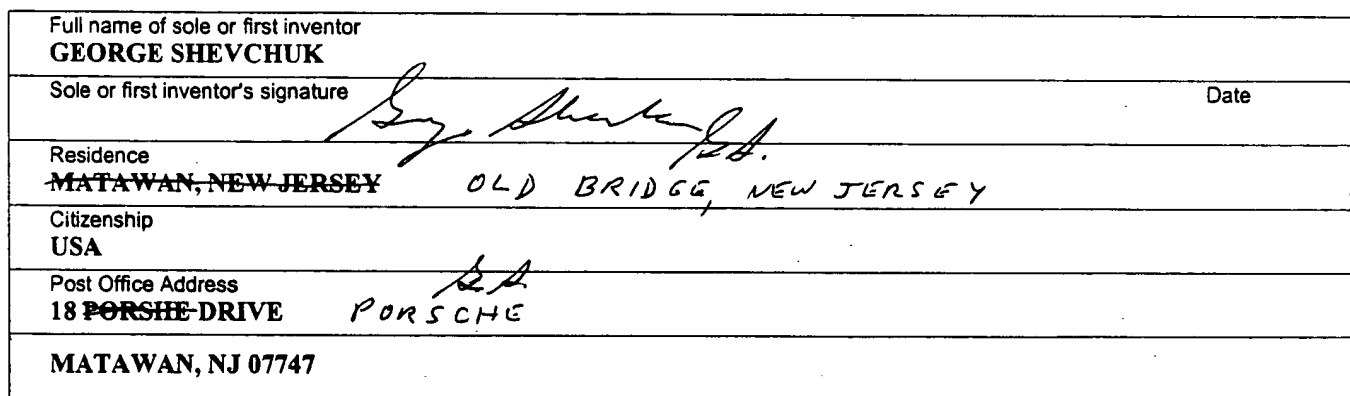 Full name of sole or first inventor
GEORGE SHEVCHUK
Sole or first inventor's signature Date
Residence
MATAWAN, NEW JERSEY OLD BRIDGE, NEW JERSEY
Citizenship
USA
Post Office Address
18 PORSHE DRIVE PORSCHE
MATAWAN, NJ 07747